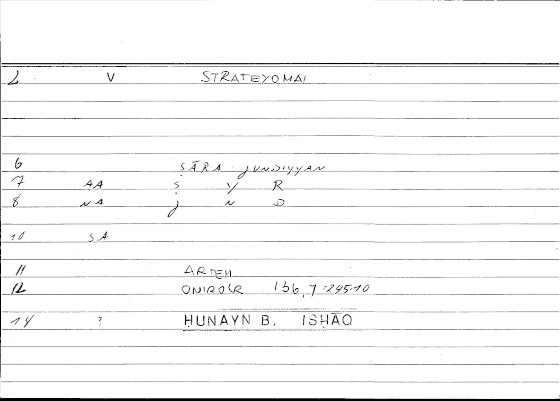 2 V STRATEYOMAI
6 ṢĀRA ǧUNDIYYAN
7 AA Ṣ Y R
8 NA ǧ N D
10 SA
11 ARTEM
12 ONIROCR 156,7:245,10
14 ? ḤUNAYN B. ISḤĀQ